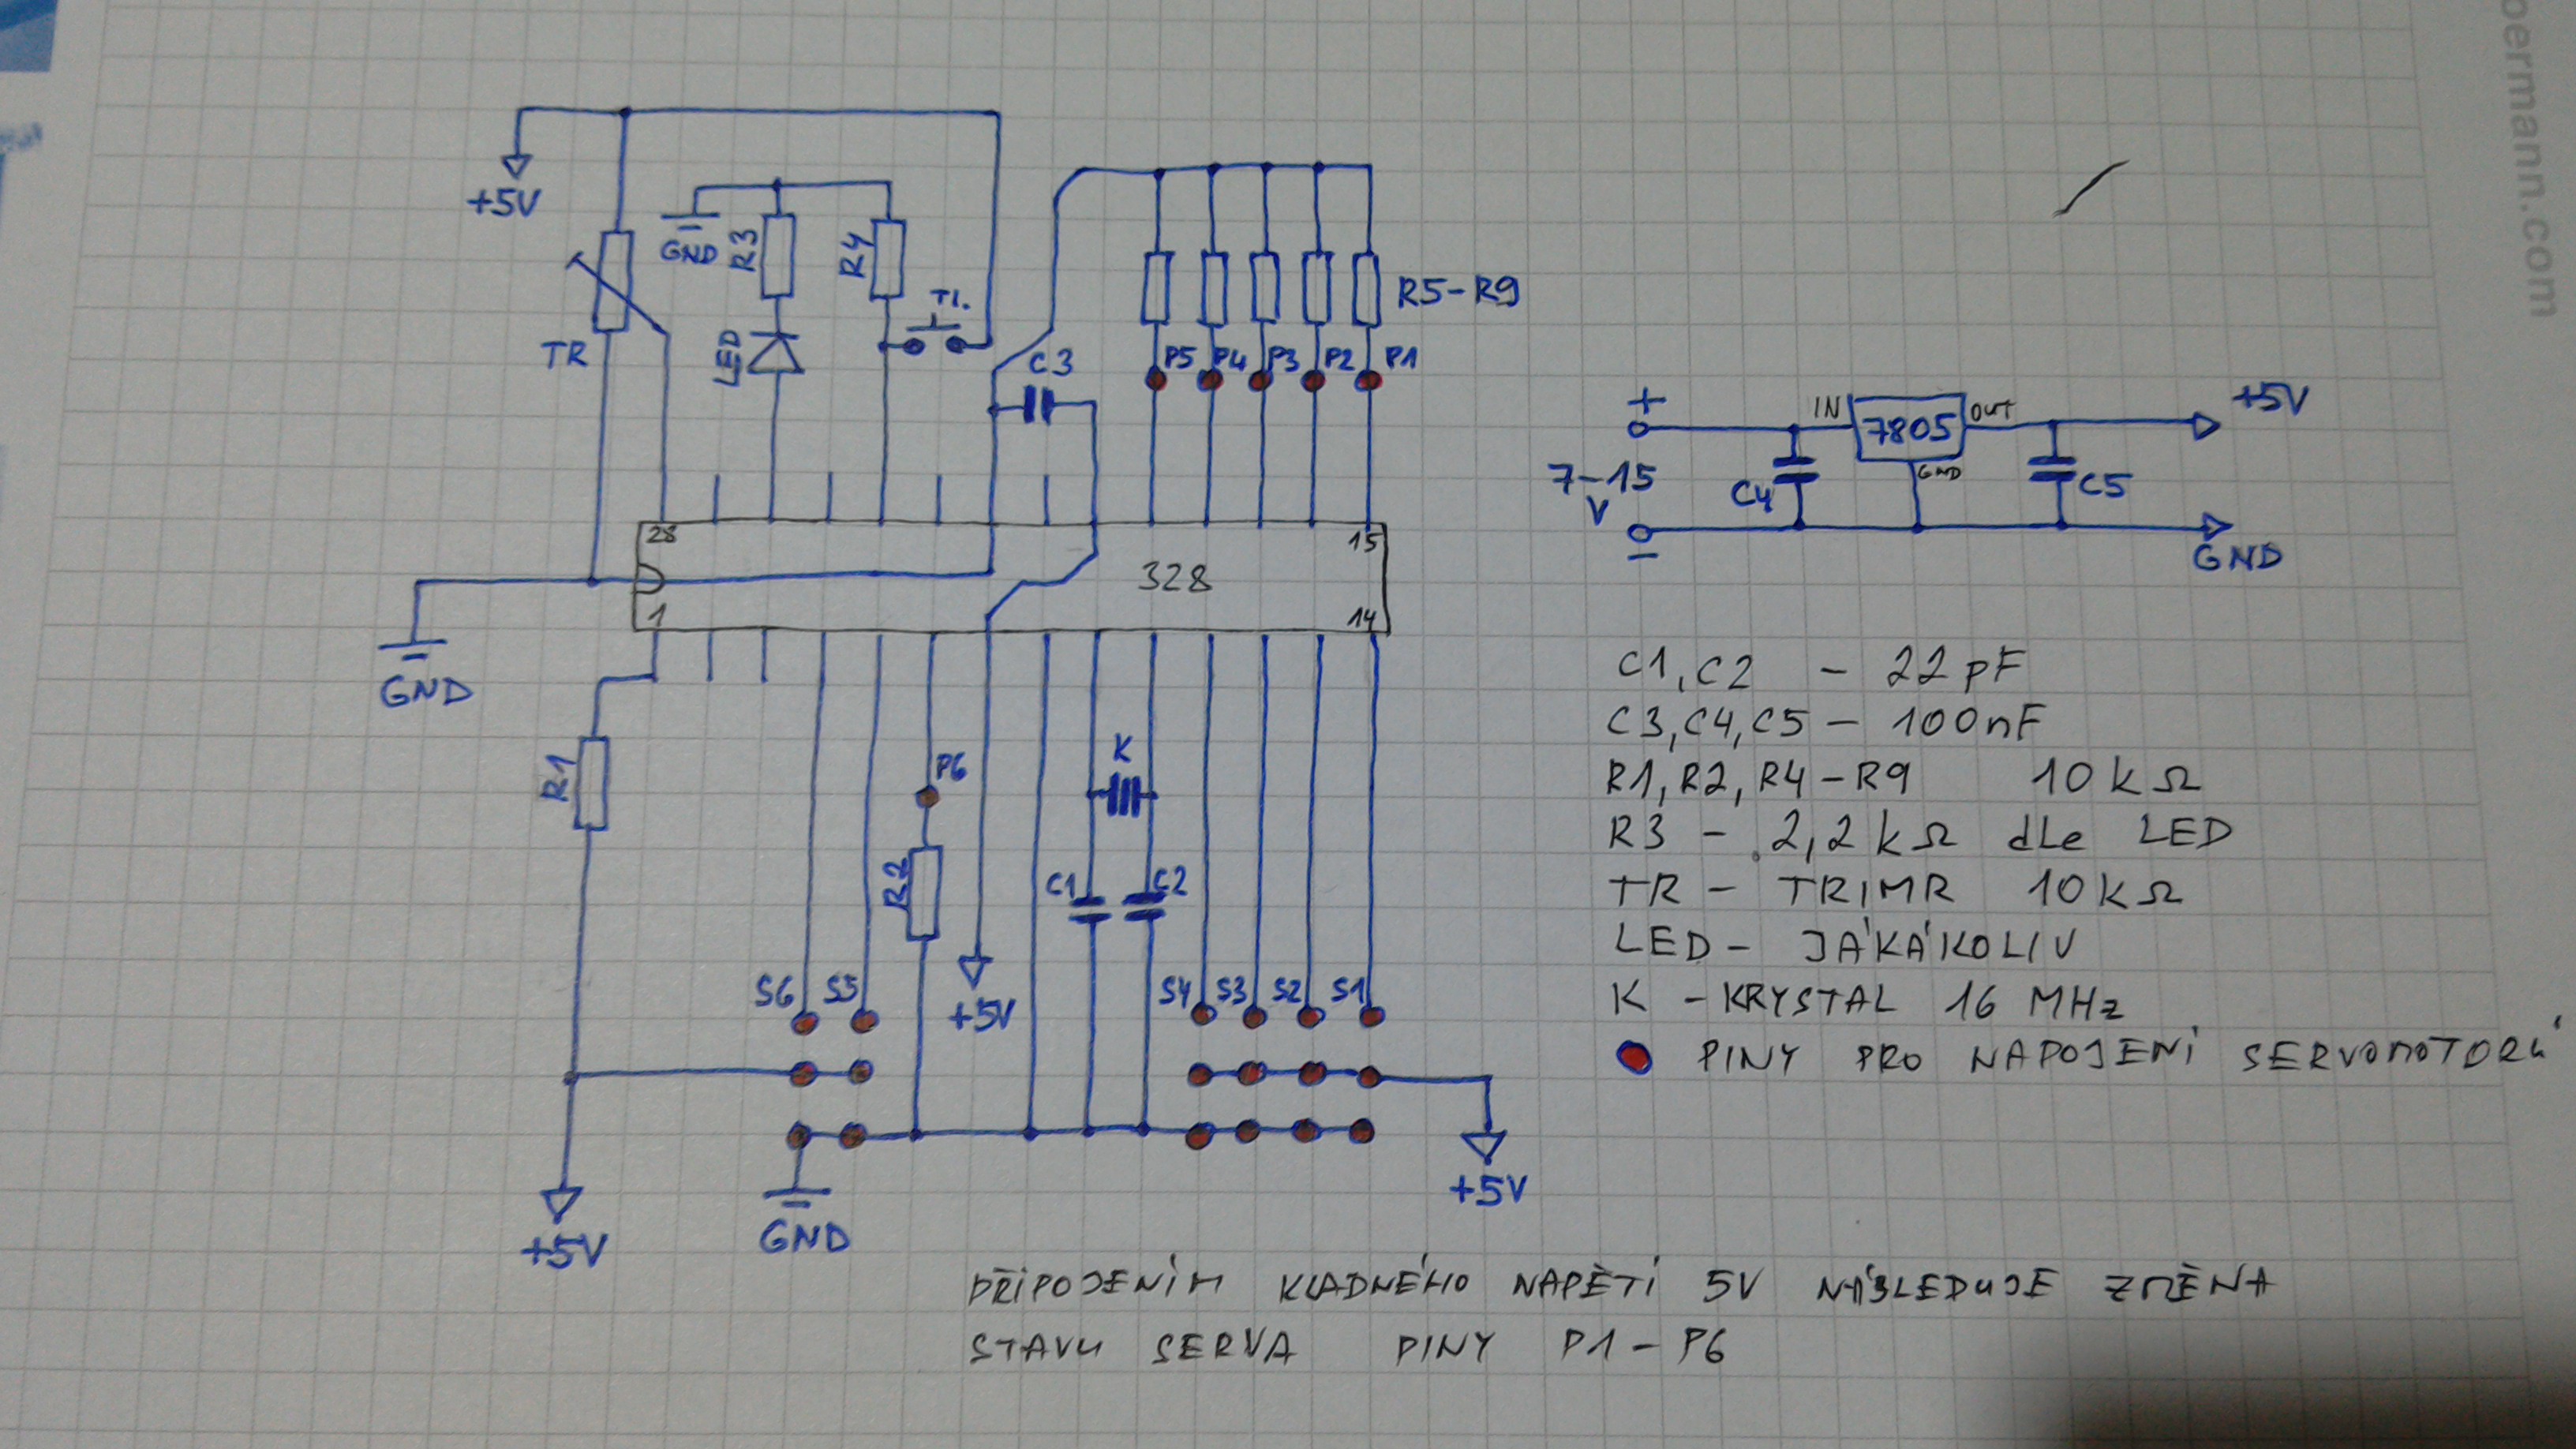 oermann.com
+5V
GND
R3
R4
T1.
TR
LED
C3
R5-R9
P5 P4 P3 P2 P1
28
15
328
1
14
GND
R1
P6
K
R2
C1
C2
S6 S5
+5V
S4 S3 S2 S1
+5V
GND
+5V
+
IN
7805
OUT
+5V
7-15
V
C4
GND
C5
–
GND
C1,C2 - 22pF
C3,C4,C5 - 100nF
R1,R2,R4-R9 10kΩ
R3 - 2,2kΩ dLe LED
TR - TRIMR 10kΩ
LED - JÁKÁKOLIV
K - KRYSTAL 16 MHz
PINY PRO NAPOJENÍ SERVOMOTORŮ
PŘIPOJENÍM KLADNÉHO NAPĚTÍ 5V NÁSLEDUJE ZMĚNA
STAVU SERVA PINY P1-P6